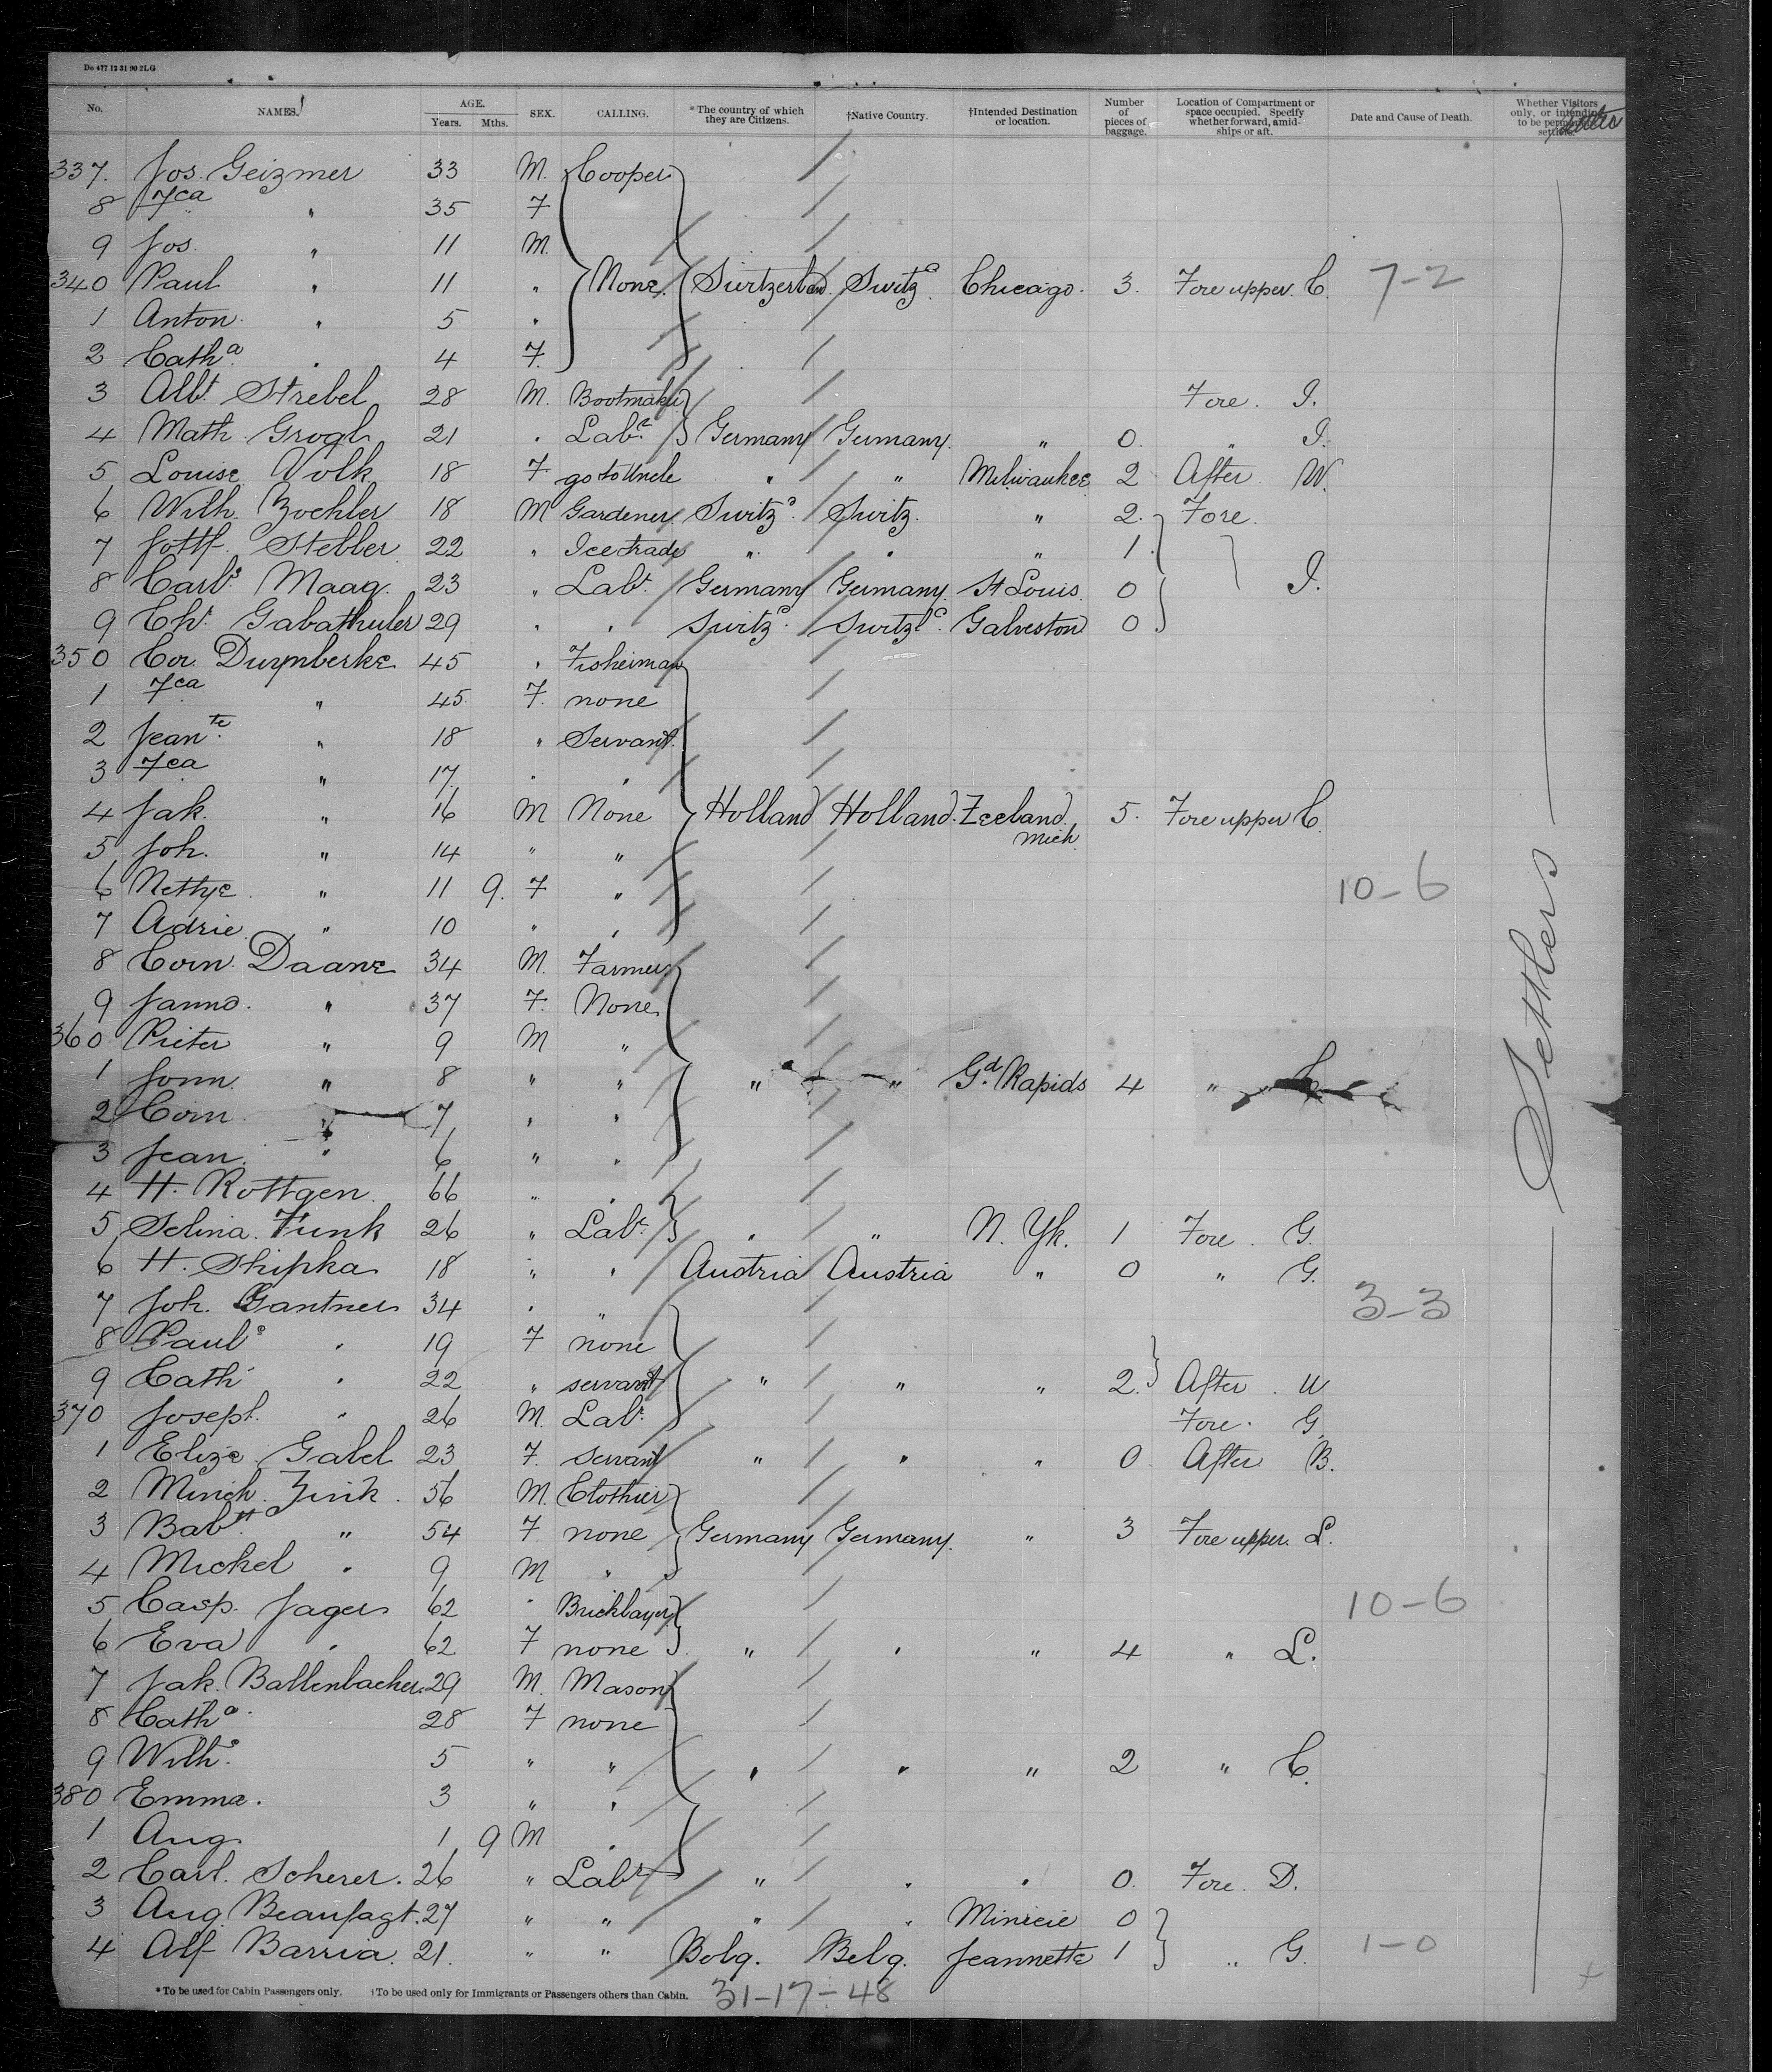 Do 477 12 31 90 2LG
No. NAMES. AGE. Years. Mths. SEX. CALLING. *The country of which they are Citizens. †Native Country. †Intended Destination or location. Number of pieces of baggage. Location of Compartment or space occupied. Specify whether forward, amidships or aft. Date and Cause of Death. Whether Visitors only, or intending to be permanent settlers.
337. Jos. Geizmer 33 M. Cooper
8 Fca " 35 F
9 Jos. " 11 M.
340 Paul " 11 " None. Switzerland Switzd. Chicago. 3. Fore upper. C. 7-2
1 Anton. " 5 "
2 Catha. " 4 F.
3 Albt. Strebel 28 M. Bootmaker Fore. I.
4 Math. Grogl 21 " Labr. Germany Germany. " 0. " I.
5 Louise Volk 18 F go to Uncle " " Milwaukee 2 After W.
6 Wilh. Boehler 18 M Gardener Switzd. Switz. " 2. Fore.
7 Gottf. Stebler 22 " Ice trade " " " 1.
8 Carl Maag. 23 " Labr. Germany Germany. St Louis. 0 I.
9 Chr. Gabathuler 29 " " Switzd. Switzld. Galveston 0
350 Cor. Duynberke 45 " Fisherman
1 Fca " 45. F. none
2 Jeante. " 18 " Servant.
3 Fca " 17. " "
4 Jak. " 16 M None Holland Holland. Zeeland. Mich. 5. Fore upper C.
5 Joh. " 14 " "
6 Nettye " 11 9. F " 10-6
7 Adrie " 10 " "
8 Corn. Daane 34 M. Farmer
9 Janno. " 37 F. None
360 Pieter " 9 M "
1 Jonn. " 8 " " " " Gd. Rapids 4 " C
2 Corn. " 7 " "
3 Jean. " 6 " "
4 H. Rottgen. 66 " "
5 Selina. Funk 26 " Labr. " " N. Yk. 1 Fore. G.
6 H. Shipka 18 " " Austria Austria " 0 " G.
7 Joh. Gantner 34 " " 3-3
8 Paule " 19 F none
9 Cath " 22 " servant " " " 2. After. W
370 Joseph. " 26 M. Labr. Fore. G.
1 Elize Gabel 23 F. servant " " " 0. After B.
2 Minch. Zink. 56 M. Clothier
3 Babtt " 54 F none Germany Germany. " 3 Fore upper. L.
4 Michel " 9 M "
5 Casp. Jager 62 " Bricklayer 10-6
6 Eva " 62 F none " " " 4 " L.
7 Jak. Ballenbacher. 29 M. Mason
8 Catha. 28 F none
9 Wilhe. 5 " " " " " 2 " C.
380 Emma. 3 " "
1 Aug. 1 9 M "
2 Carl. Scherer. 26 " Labr " " " 0. Fore. D.
3 Aug. Beaufagt. 27 " " " " 0
4 Alf Barria. 21. " " Belg. Belg. Jeannette 1 " G. 1-0
Settlers
*To be used for Cabin Passengers only. †To be used only for Immigrants or Passengers others than Cabin. 31-17-48